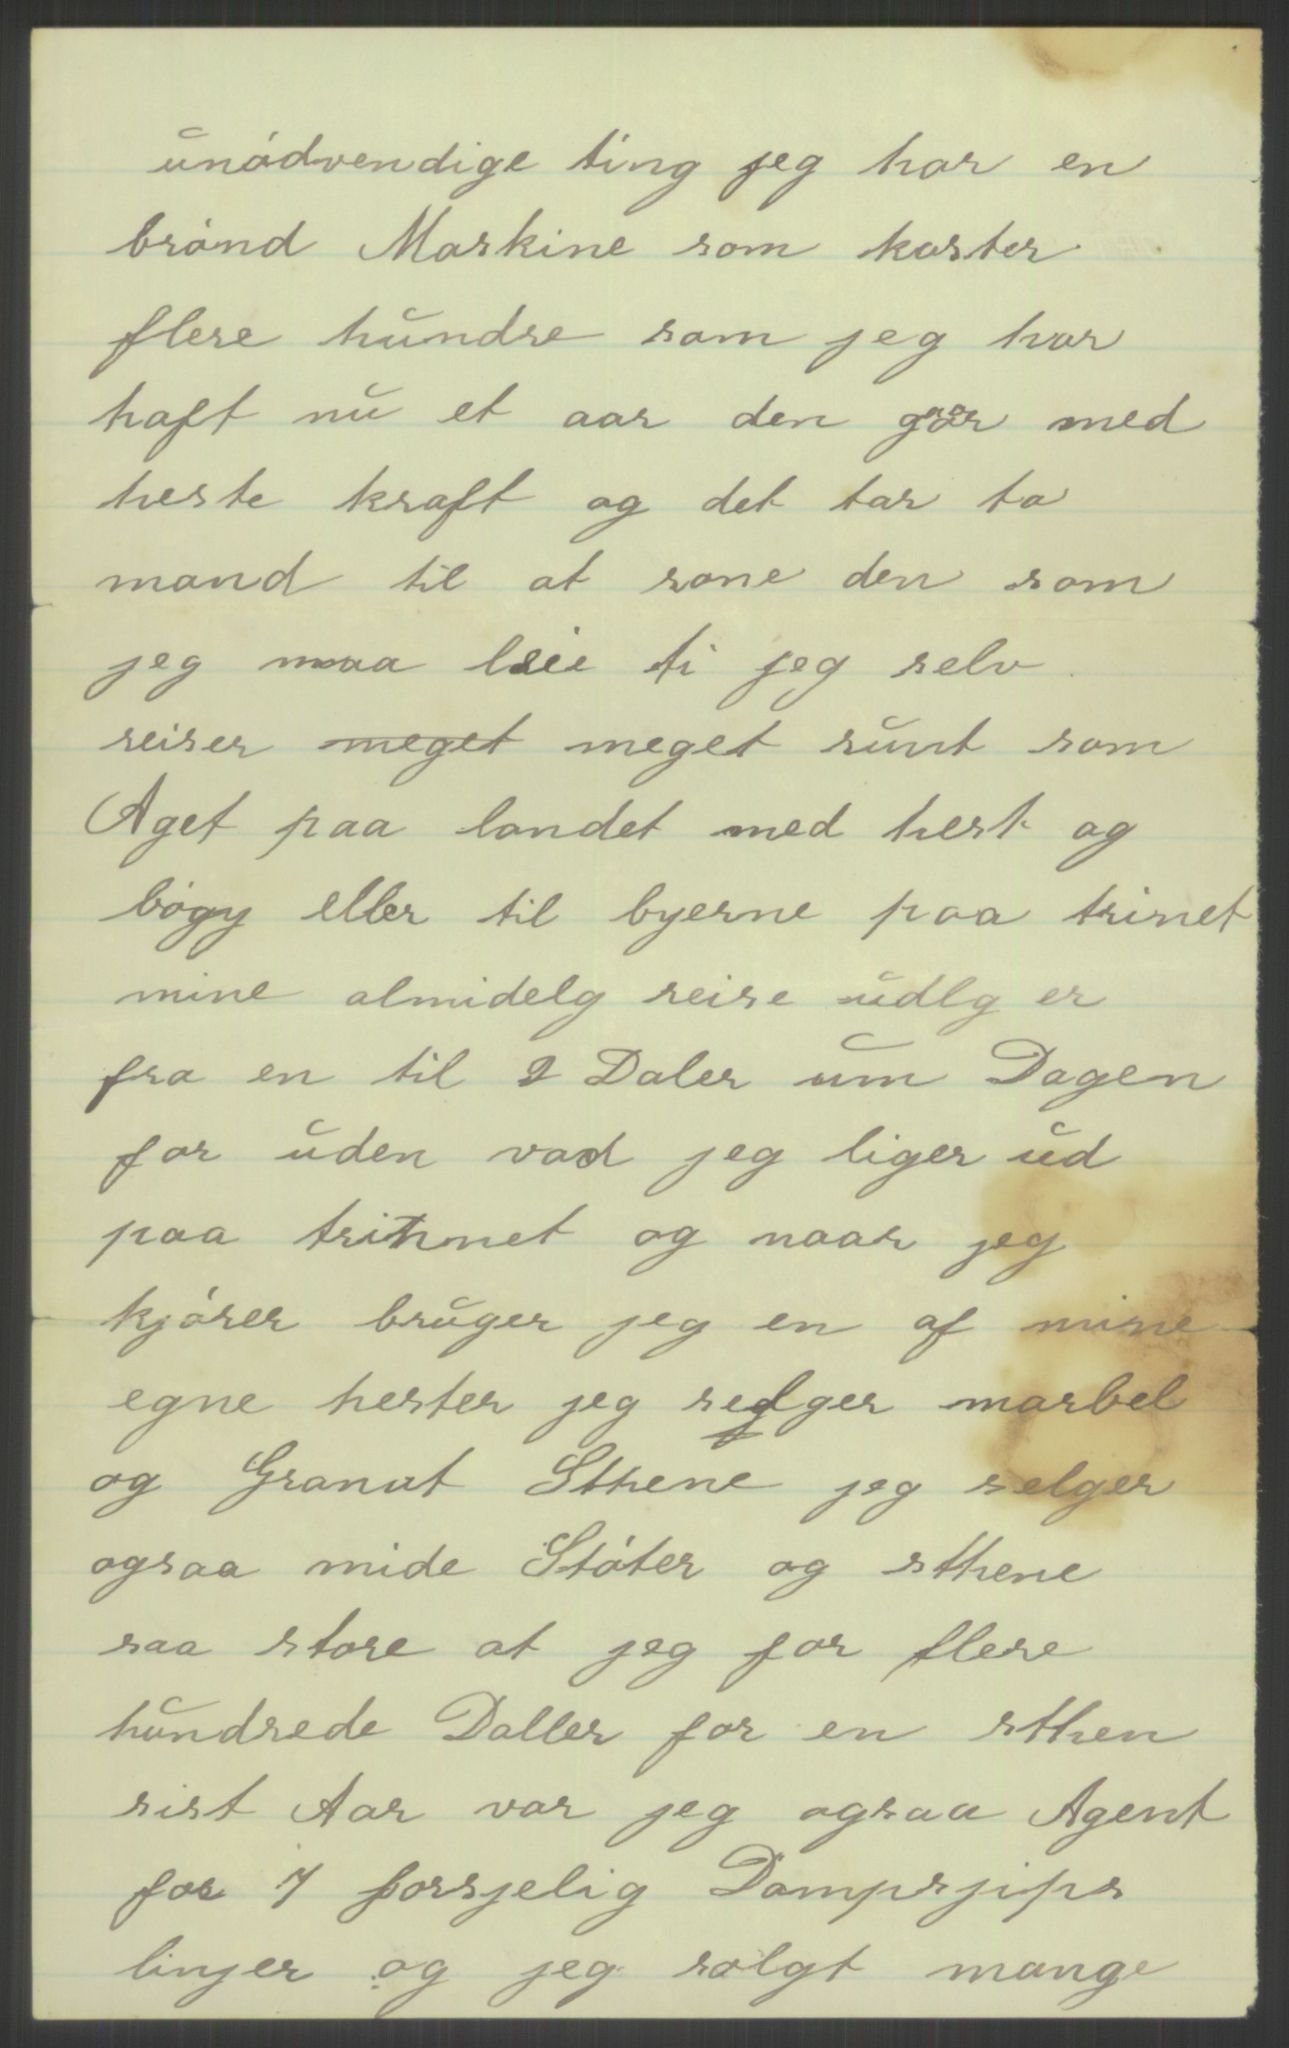 unódvendige ting jeg har en
brónd Maskine som koster
flere hundre som jeg har
haft nu et aar den gaar med
heste kraft og det tar to
mand til at rone den som
jeg maa leie ti jeg selv
reiser meget meget runt som
Aget paa landet med hest og
bógy eller til byerne paa trinet
mine almidelg reise udlg er
fra en til 2 Daler um Dagen
for uden vad jeg liger ud
paa trinnet og naar jeg
kjórer bruger jeg en af mine
egne hester jeg selger marbel
og Granat Sthene jeg selger
ogsaa mide Stóter og sthene
saa store at jeg for flere
hundrede Daller for en sthen
sist Aar var jeg ogsaa Agent
for 7 forsjelig Dampsjips
linjer og jeg solgt mange